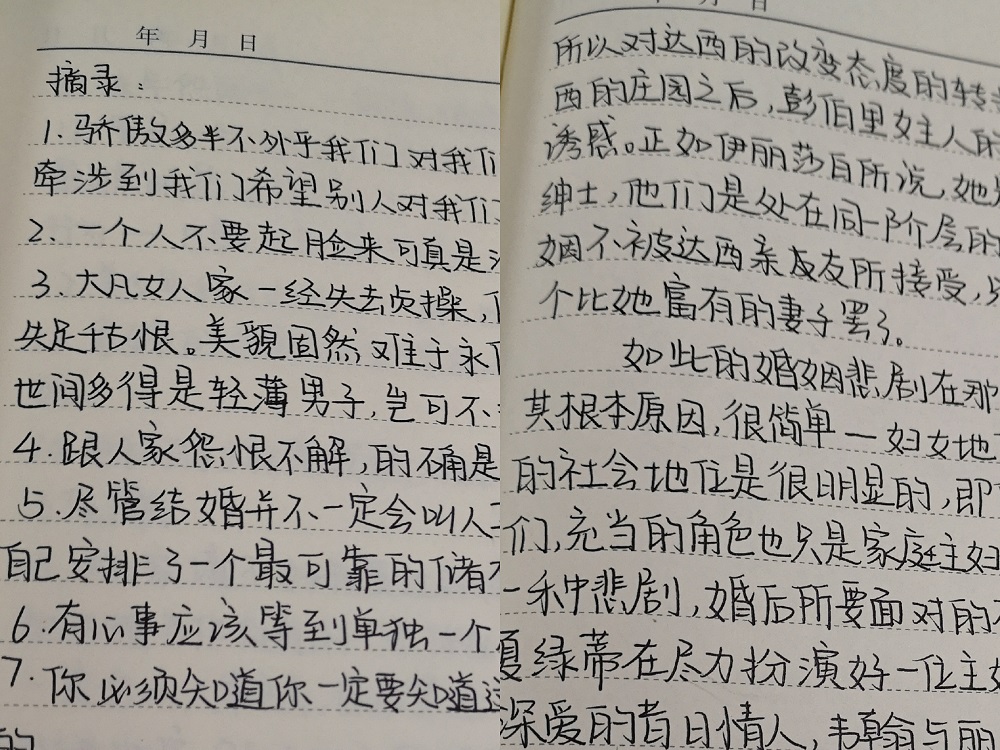 年 月 日
摘录：
1. 骄傲多半不外乎我们对我们
牵涉到我们希望别人对我们
2. 一个人不要起脸来可真是
3. 大凡女人家一经失去贞操，
失足千古恨。美貌固然难于永
世间多得是轻薄男子，岂可不
4. 跟人家怨恨不解，的确是
5. 尽管结婚并不一定会叫人
自己安排了一个最可靠的储
6. 有心事应该等到单独一个
7. 你必须知道你一定要知道这
的
年 月 日
所以对达西的改变态度的转
西的庄园之后，彭伯里女主人的
诱惑。正如伊丽莎白所说，她
绅士，他们是处在同一阶层的
姻不被达西亲戚友所接受，
个比她富有的妻子罢了。
如此的婚姻悲剧在那
其根本原因，很简单—妇女地
的社会地位是很明显的，即
们，充当的角色也只是家庭主妇
一种悲剧，婚后所要面对的
夏绿蒂在尽力扮演好一位主
深爱的昔日情人，韦翰与丽